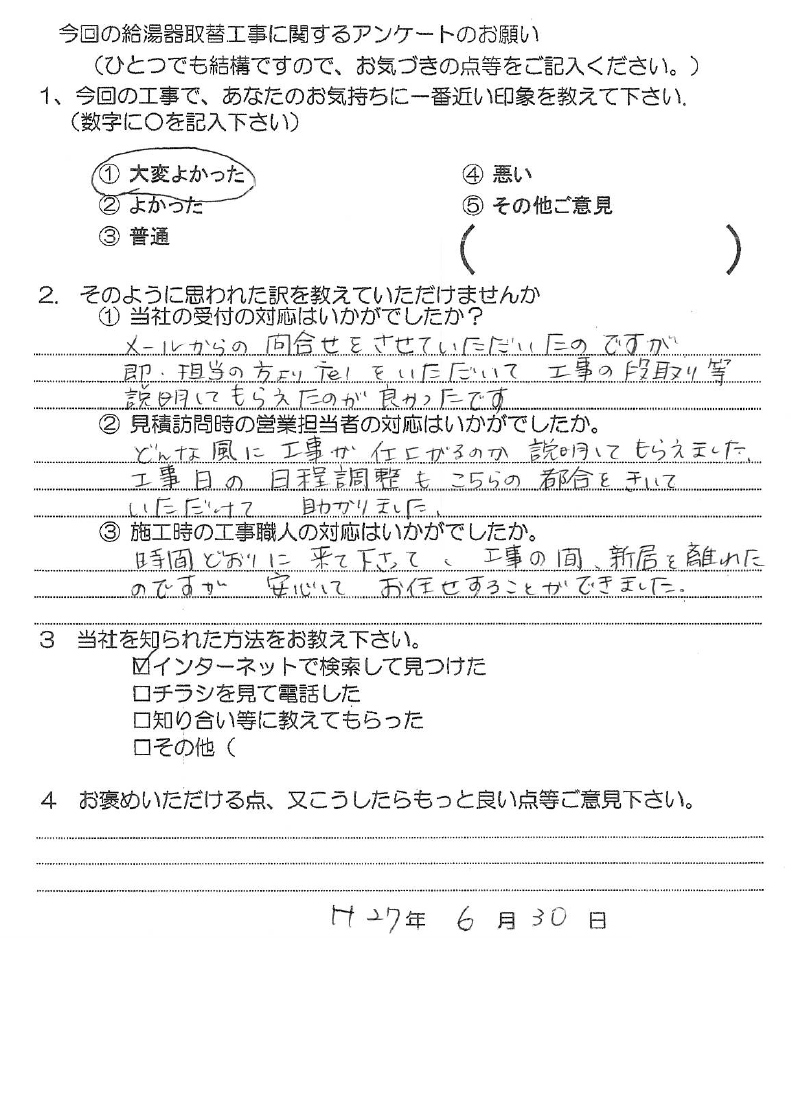 今回の給湯器取替工事に関するアンケートのお願い
（ひとつでも結構ですので、お気づきの点等をご記入ください。）
1、今回の工事で、あなたのお気持ちに一番近い印象を教えて下さい.
（数字に〇を記入下さい）
① 大変よかった ④ 悪い
② よかった ⑤ その他ご意見
③ 普通 ( )
2. そのように思われた訳を教えていただけませんか
① 当社の受付の対応はいかがでしたか？
メールからの 問合せをさせていただいたの ですが
即・担当の方より tel をいただいて 工事の段取り等
説明してもらえたのが 良かったです
② 見積訪問時の営業担当者の対応はいかがでしたか。
どんな風に 工事が 仕上がるのか 説明して もらえました、
工事日の 日程調整も こちらの 都合を きいて
いただけて 助かりました、
③ 施工時の工事職人の対応はいかがでしたか。
時間どおりに 来て下さって、工事の間、新居を離れた
のですが 安心して お任せすることが できました.
3 当社を知られた方法をお教え下さい。
☑インターネットで検索して見つけた
□チラシを見て電話した
□知り合い等に教えてもらった
□その他（
4 お褒めいただける点、又こうしたらもっと良い点等ご意見下さい。
H27年 6 月 30 日